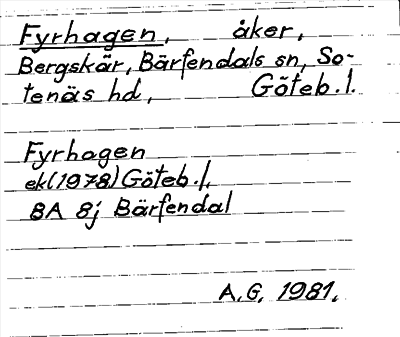 Fyrhagen, åker,
Bergskär, Bärfendals sn, So-
tenäs hd, Göteb. l.
Fyrhagen
ek (1978) Göteb. l.
8A 8j Bärfendal
A.G. 1981.